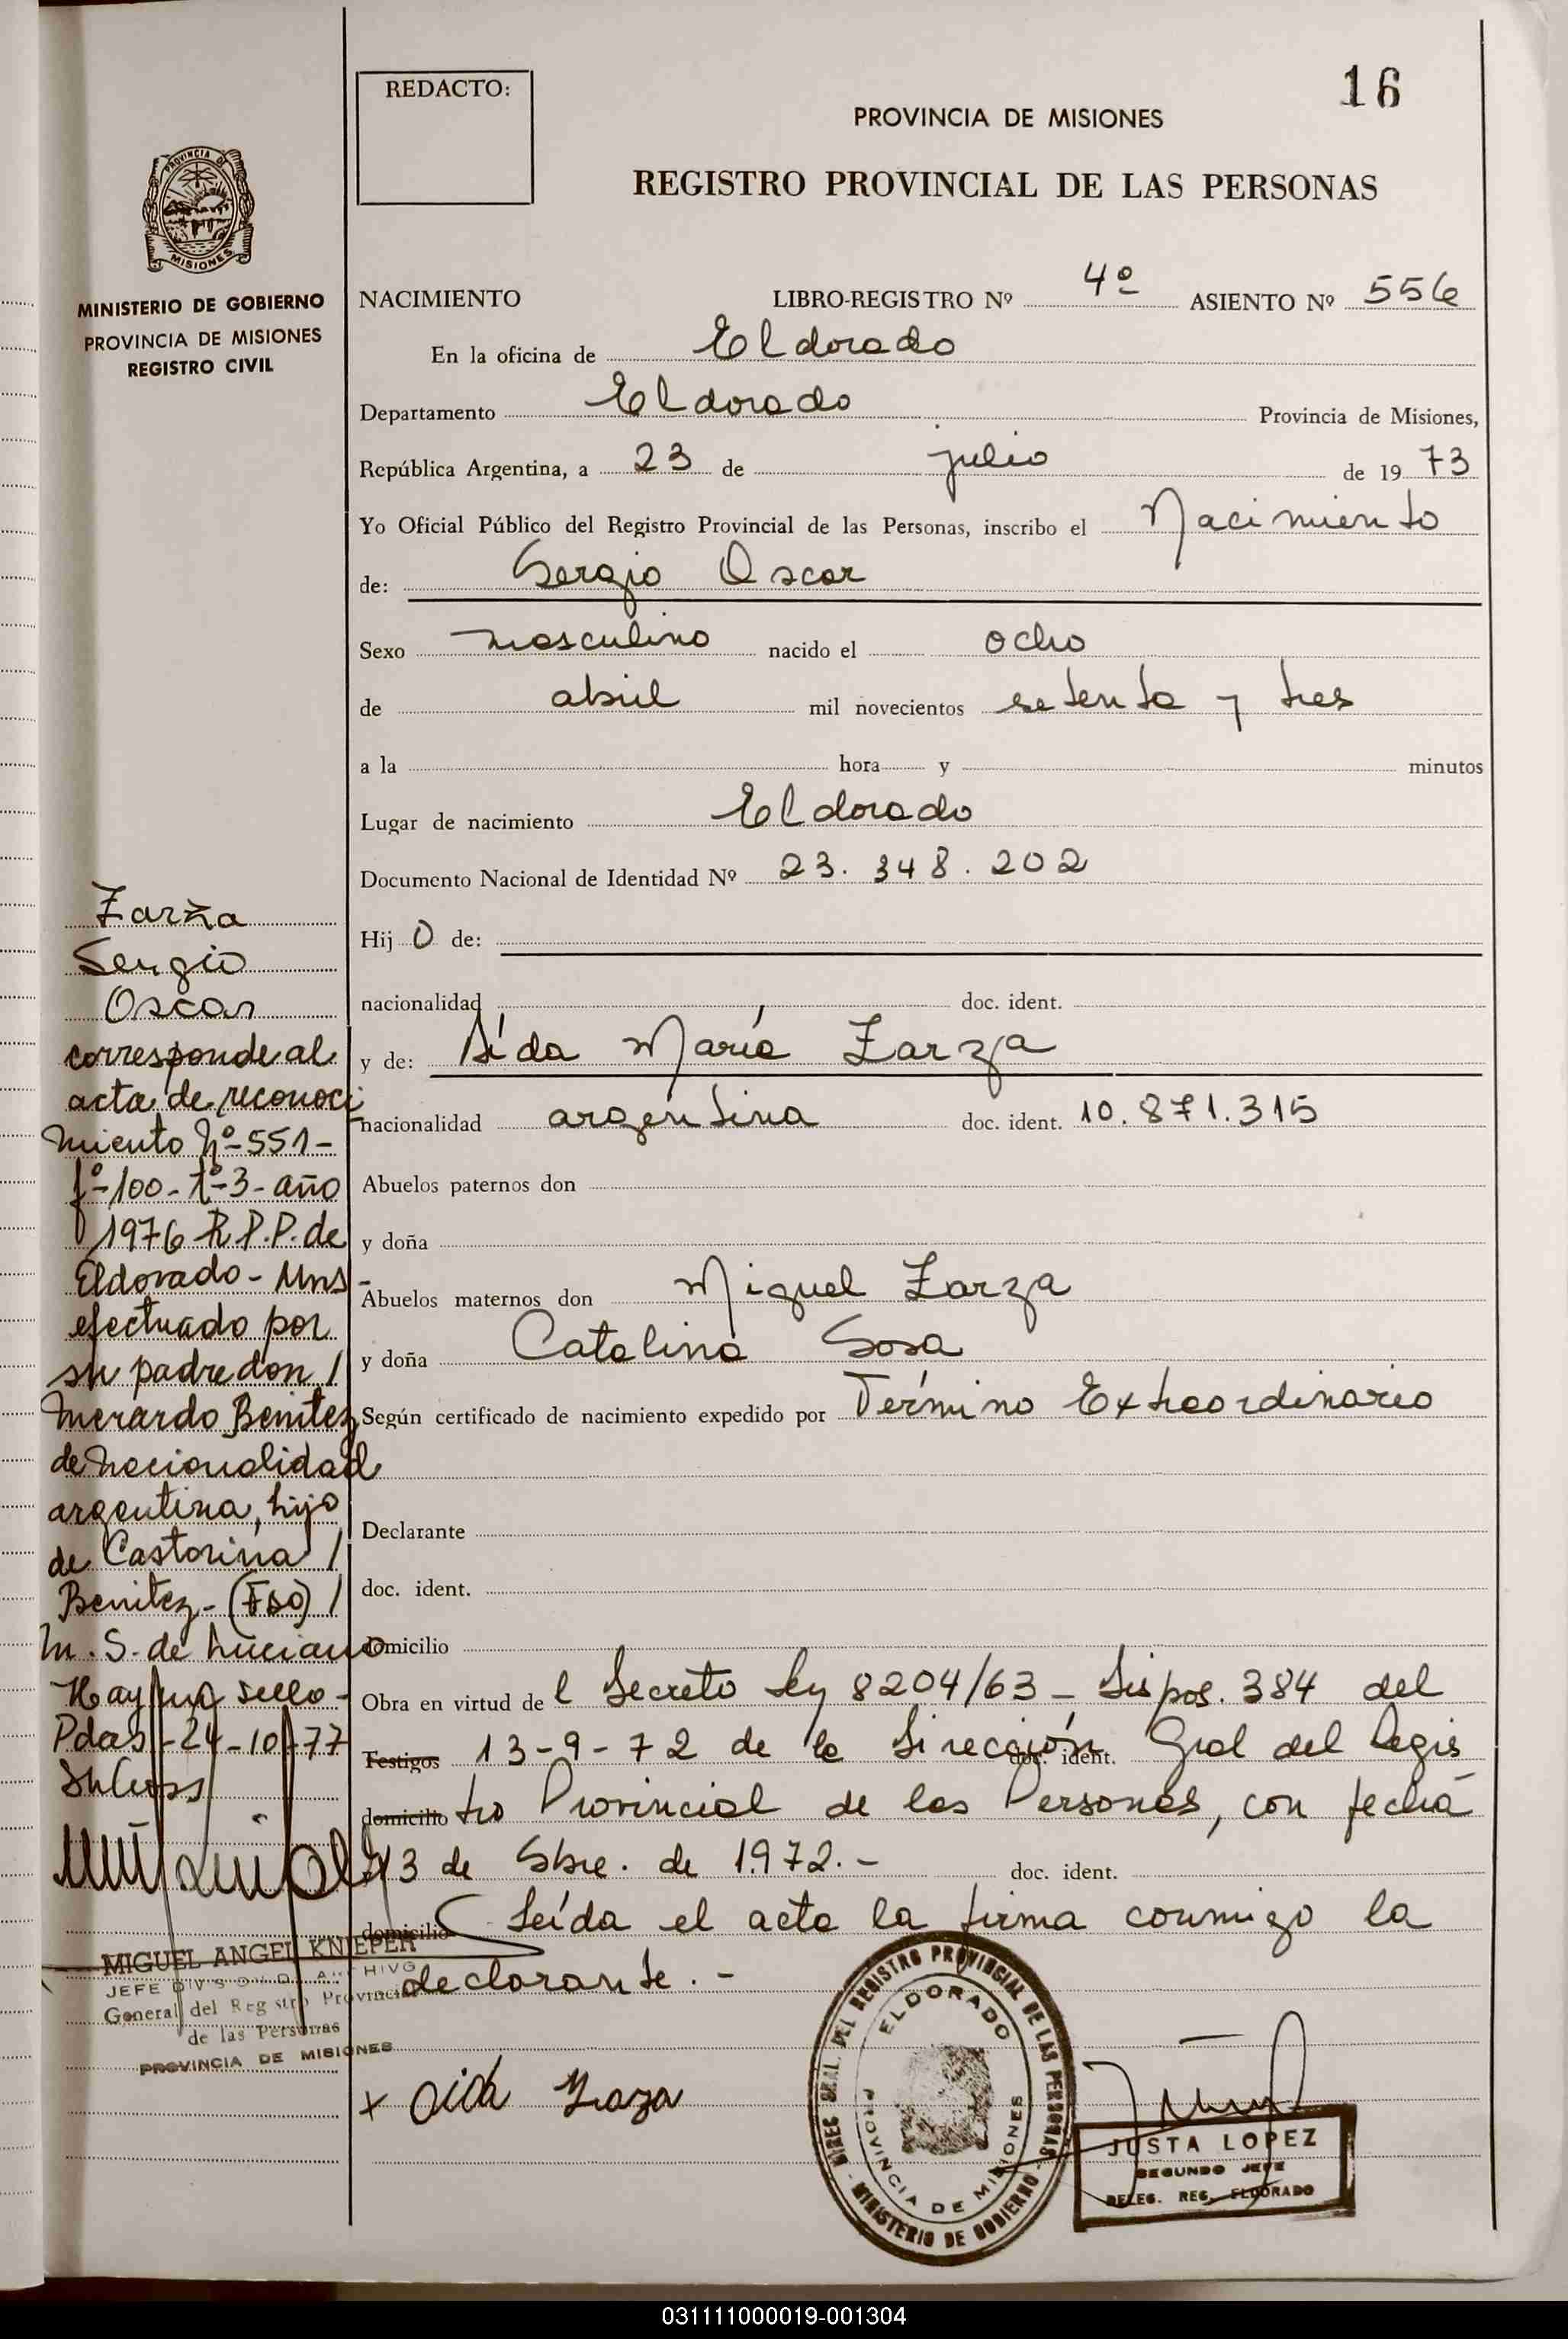 16
REDACTO:
PROVINCIA DE MISIONES
REGISTRO PROVINCIAL DE LAS PERSONAS
PROVINCIA DE
MISIONES
MINISTERIO DE GOBIERNO
PROVINCIA DE MISIONES
REGISTRO CIVIL
NACIMIENTO LIBRO-REGISTRO Nº 4º ASIENTO Nº 556
En la oficina de Eldorado
Departamento Eldorado Provincia de Misiones,
República Argentina, a 23 de julio de 19 73
Yo Oficial Público del Registro Provincial de las Personas, inscribo el Nacimiento
de: Sergio Oscar
Sexo masculino nacido el ocho
de abril mil novecientos setenta y tres
a la hora y minutos
Lugar de nacimiento Eldorado
Documento Nacional de Identidad Nº 23.348.202
Hij O de:
nacionalidad doc. ident.
y de: Aída María Zarza
nacionalidad argentina doc. ident. 10.871.315
Abuelos paternos don
y doña
Abuelos maternos don Miguel Zarza
y doña Catalina Sosa
Según certificado de nacimiento expedido por Término Extraordinario
Declarante
doc. ident.
domicilio
Obra en virtud de l Decreto Ley 8204/63 - Dispos. 384 del
Testigos 13-9-72 de la Dirección doc. ident. Gral del Regis
domicilio tro Provincial de las Personas, con fecha
13 de Sbre. de 1972.- doc. ident.
domicilio Leída el acta la firma conmigo la
declarante.-
x aida Zaza
Zarza
Sergio
Oscar
corresponde al
acta de reconoci
miento Nº-551-
fº-100-tº-3-año
1976 R.P.P. de
Eldorado - Mns-
efectuado por
su padre don /
Merardo Benitez
de nacionalidad
argentina, hijo
de Castorina /
Benitez - (Fdo) /
M. S. de Luciano
Hay un sello -
Pdas -24-10-77
MIGUEL ANGEL KNIEPER
JEFE DIVISION ARCHIVO
General del Registro Provincial
de las Personas
PROVINCIA DE MISIONES
DIREC. GRAL. DEL REGISTRO PROVINCIAL DE LAS PERSONAS
ELDORADO
PROVINCIA DE MISIONES
MINISTERIO DE GOBIERNO
JUSTA LOPEZ
SEGUNDO JEFE
DELEG. REG. ELDORADO
031111000019-001304